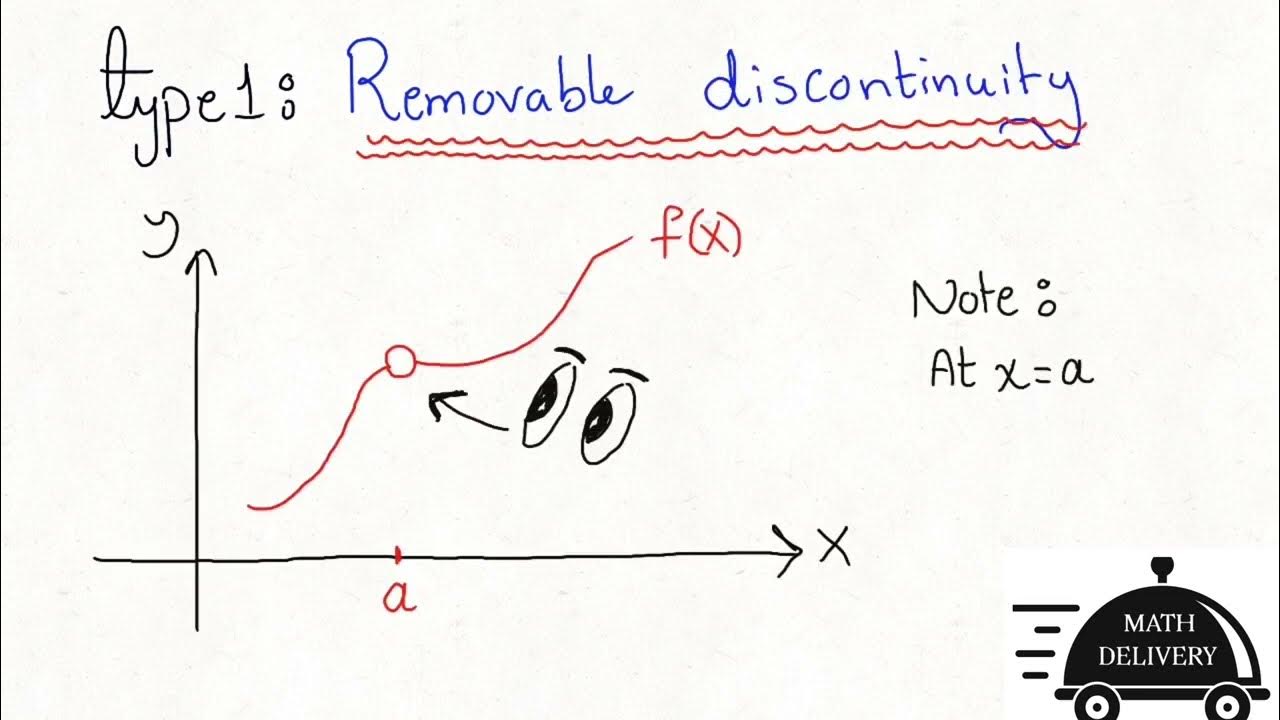 type1: Removable discontinuity
y
f(x)
Note:
At x=a
x
a
MATH
DELIVERY